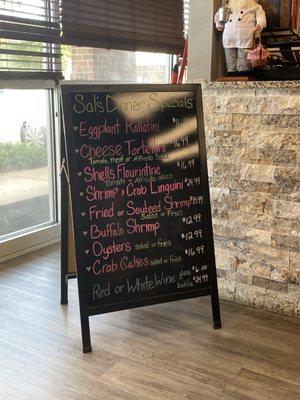 Sal's Dinner Specials
Eggplant Rollatini $14.99
Cheese Tortellini $16.99
Tomato, meat or Alfredo
Shells Fiourintine $16.99
Tomato or Alfredo sauce
Shrimp & Crab Linguini $24.99
Fried or Sauteed Shrimp $15.99
Salad or Fries
Buffalo Shrimp $12.99
Oysters salad or fries $12.99
Crab Cakes salad or fries $16.99
Red or White Wine glass $6.00
bottle $24.99